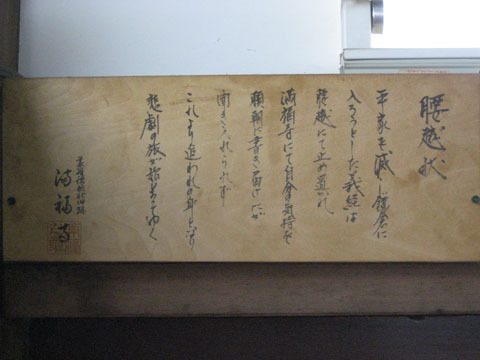 腰越状
平家を滅し鎌倉に
入ろうとした義経は
腰越にて止め置かれ
満福寺にて自分の気持を
頼朝に書き届けたが
聞き入れられず
これより追われの身となり
悲劇の旅が始まるゆく
義経
満福寺